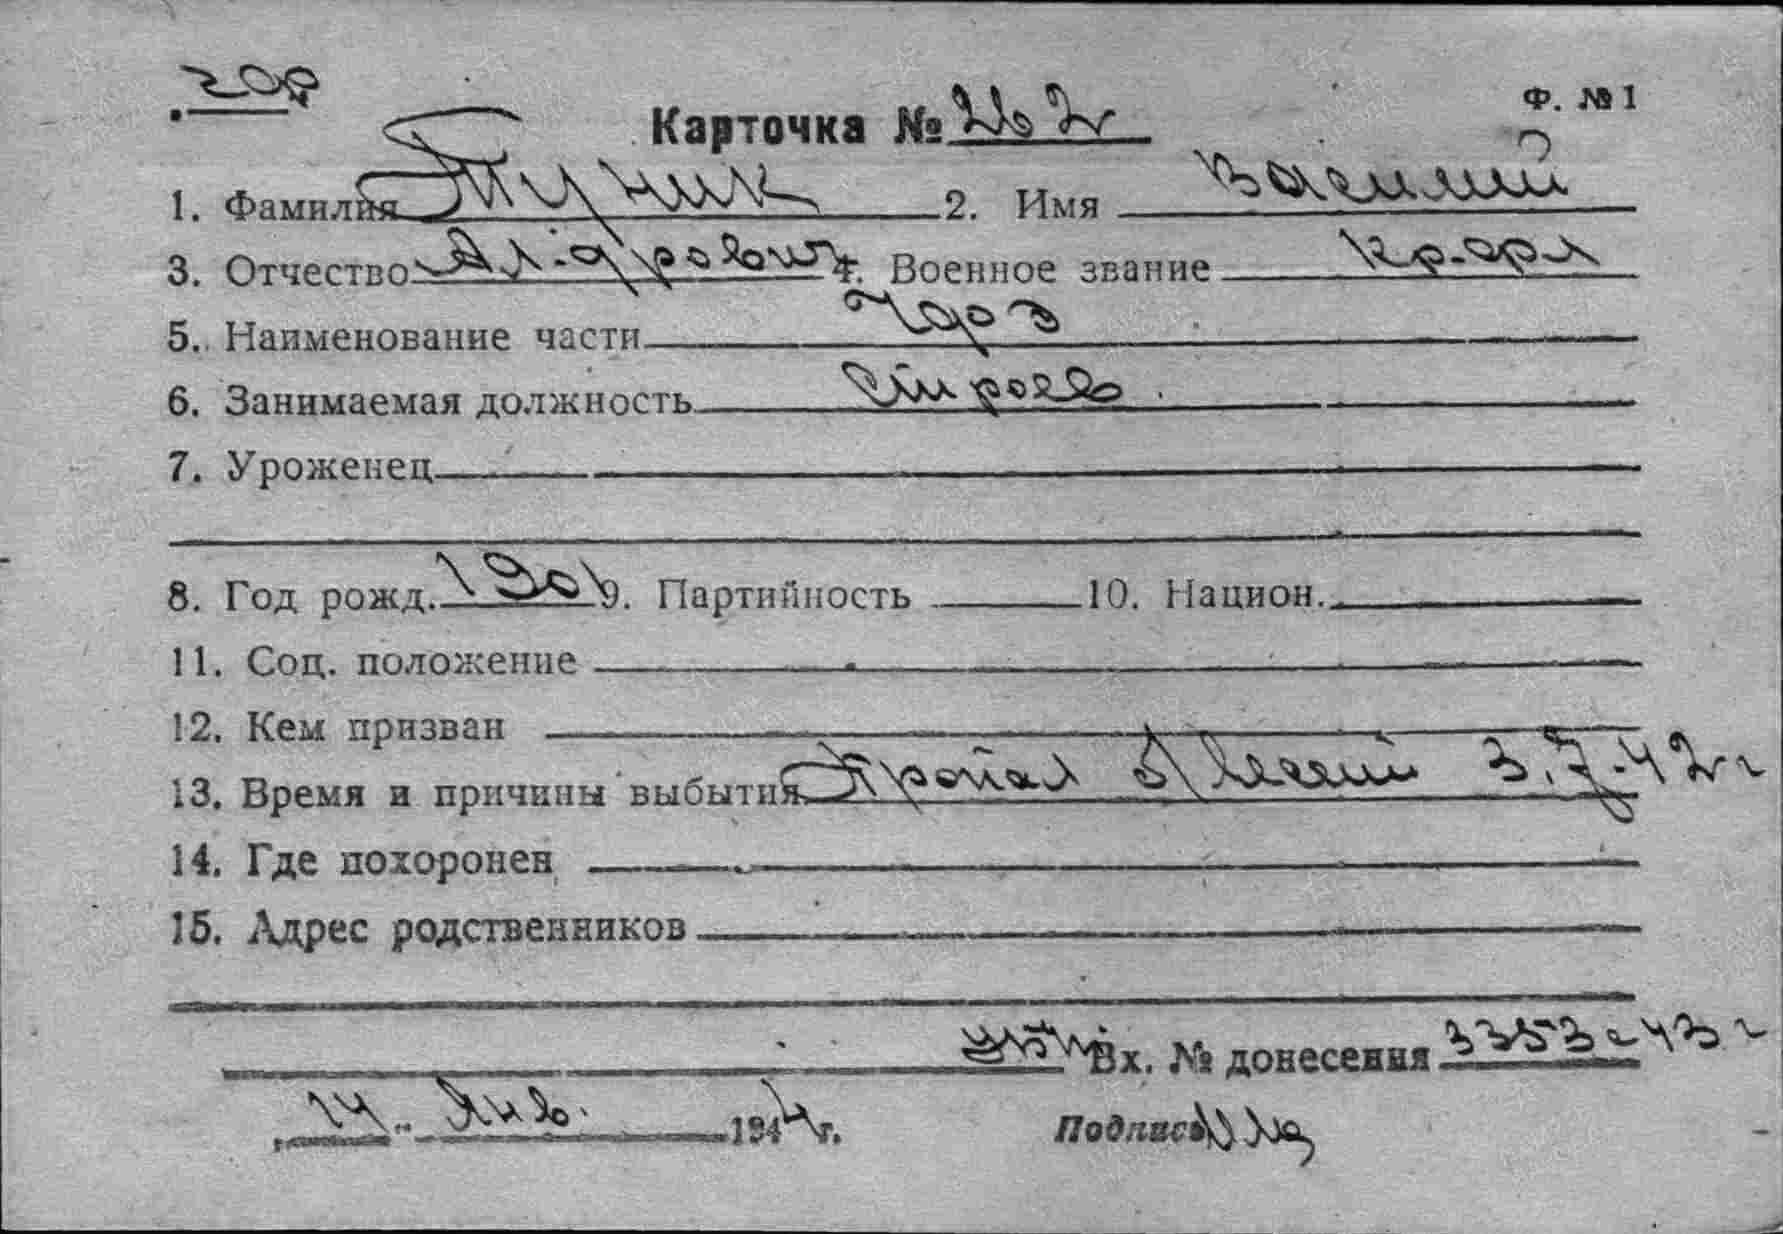 Ф. № 1
Карточка № 262
1. Фамилия Туник 2. Имя Василий
3. Отчество Ал-дрович 4. Военное звание кр-арм
5. Наименование части ЧФ
6. Занимаемая должность
7. Уроженец
8. Год рожд. 190 9. Партийность 10. Национ.
11. Соц. положение
12. Кем призван
13. Время и причины выбытия Пропал б/вести 3.7.42г
14. Где похоронен
15. Адрес родственников
Вх. № донесения 3353с 43г
14 Янв. 1944г. Подпись